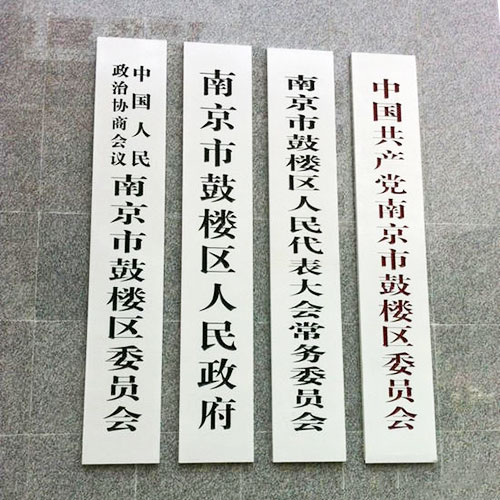 中国人民
政治协商会议
南京市鼓楼区委员会
南京市鼓楼区人民政府
南京市鼓楼区人民代表大会常务委员会
中国共产党南京市鼓楼区委员会